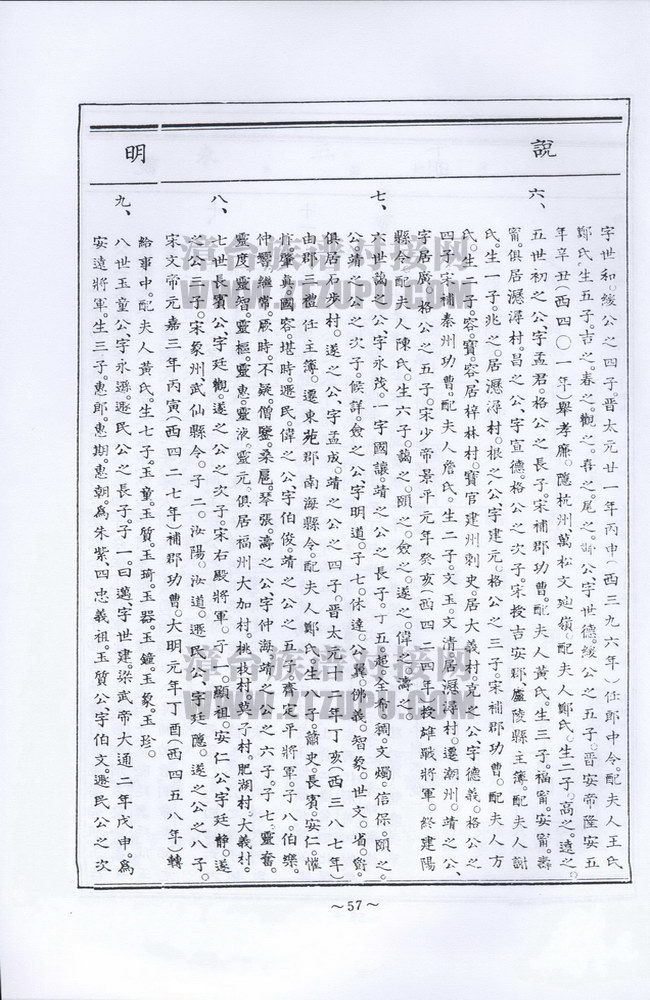 說明
字世和。綬公之四子。晉太元廿一年丙申（西三九六年）任郎中令。配夫人王氏
鄭氏生五子。吉之。春之。觀之。喜之。尾之。公字世德。綬公之五子。晉安帝隆安五
年辛丑（西四〇一年）舉孝廉。隱杭州萬松文嶺。配夫人鄭氏。生二子。高之。遠之。
六、五世初之公、字孟君。格公之長子。宋補郡功曹。配夫人黃氏。生三子。福甯。安甯。壽
甯。俱居瀮潯村。昌之公、字宣德。格公之次子。宋授吉安郡廬陵縣主簿。配夫人謝
氏。生一子。兆之。居瀮潯村。根之公字建元。格公之三子。宋補郡功曹。配夫人方
氏。生二子。容。寶。容居梓林村。寶官建州刺史。居大義村。克之公、字德義。格公之
四子。宋補秦州功曹。配夫人詹氏。生二子。文玉。文清。居瀮潯村。遷潮州。靖之公、
字居廣。格公之五子。宋少帝景平元年癸亥（西四二四年）授雄戰將軍。終建陽
縣令。配夫人陳氏。生六子。藹之。頤之。僉之。遂之。偉之。濤之。
七、六世藹之公、字永茂。一字國讓。靖之公之長子。丁五。起。全。布。稠。文燭。信保。頤之。
公、靖之公之次子。侯詳。僉之公、字明道。子七。休達。公翼。佛義。智象。世文。省。衡。
俱居石步村。遂之公、字孟成。靖之公之四子。晉太元十二年丁亥（西三八七年）
由郡三禮任主簿。遷東苑郡南海縣令。配夫人鄭氏生八子。蕭史。長賓。安仁。惟
忻。肇真。國容。堪時。遯民。偉之公、字伯俊。靖之公之五子。齊定平將軍。子八。伯樂。
仲響。繼常。厥時。不疑。僧鑒。桑扈。琴張。濤之公、字仲海。靖之公之六子。子七。靈奮。
靈度。靈智。靈樞。靈惠。靈液。靈元。俱居福州大加村。桃枝村。莫子村。肥湖村。大義村。
八、七世長賓公、字廷觀。遂之公之次子。宋右殿將軍。子一。顯祖。安仁公、字廷靜。遂
之公三子。宋象州武仙縣令。子二。汝陽。汝道。遯民公、字廷隱。遂之公之八子。
宋文帝元嘉三年丙寅（西四二七年）補郡功曹。大明元年丁酉（西四五八年）轉
給事中。配夫人黃氏。生七子。玉童。玉質。玉琦。玉器。玉鐘。玉象。玉珍。
九、八世玉童公、字永遜。遯民公之長子。子一。曰邁。字世建。梁武帝大通二年戊申。為
安遠將軍。生三子。惠郎。惠期。惠朝。為朱紫四忠義祖。玉質公、字伯文。遯民公之次
～57～
漳台族谱对接网
WWW.ZTZUPU.COM
漳台族谱对接网
WWW.ZTZUPU.COM